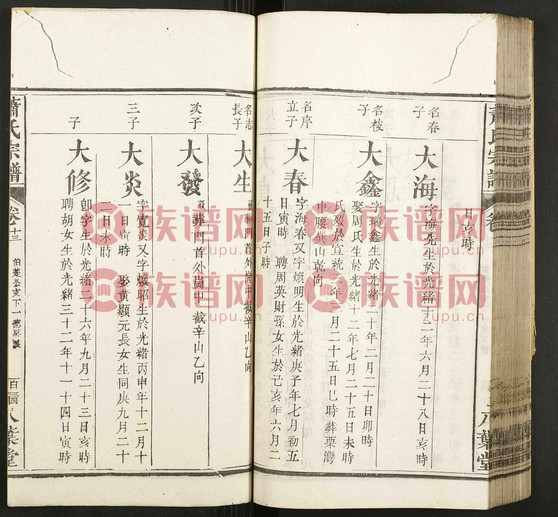 日亥時
名春
子
大海
字海先生於光緒十二年六月二十八日亥時
名枝
子
大鑫
字瑞鑫生於光緒二十年二月二十日卯時
娶周氏生於光緒十二年七月二十五日未時
氏歿於宣統年二月二十五日巳時葬栗灣
中腰癸山乾向
名序
立子
大春
字海春又字懷明生於光緒庚子年七月初五
日寅時 聘周英財孫女生於己亥年六月二
十五日子時
名志
長子
大生
葬門首外園中截辛山乙向
次子
大發
葬門首外園中截辛山乙向
三子
大炎
字質炎又字懷昭生於光緒丙申年十二月十
一日寅時 娶黃顯元長女生同庚九月二十
日未時
子
大修
卽字生於光緒二十六年九月二十三日亥時
聘胡女生於光緒三十二年十一十四日寅時
蕭氏宗譜
卷十三
百福
八葉堂
族谱网